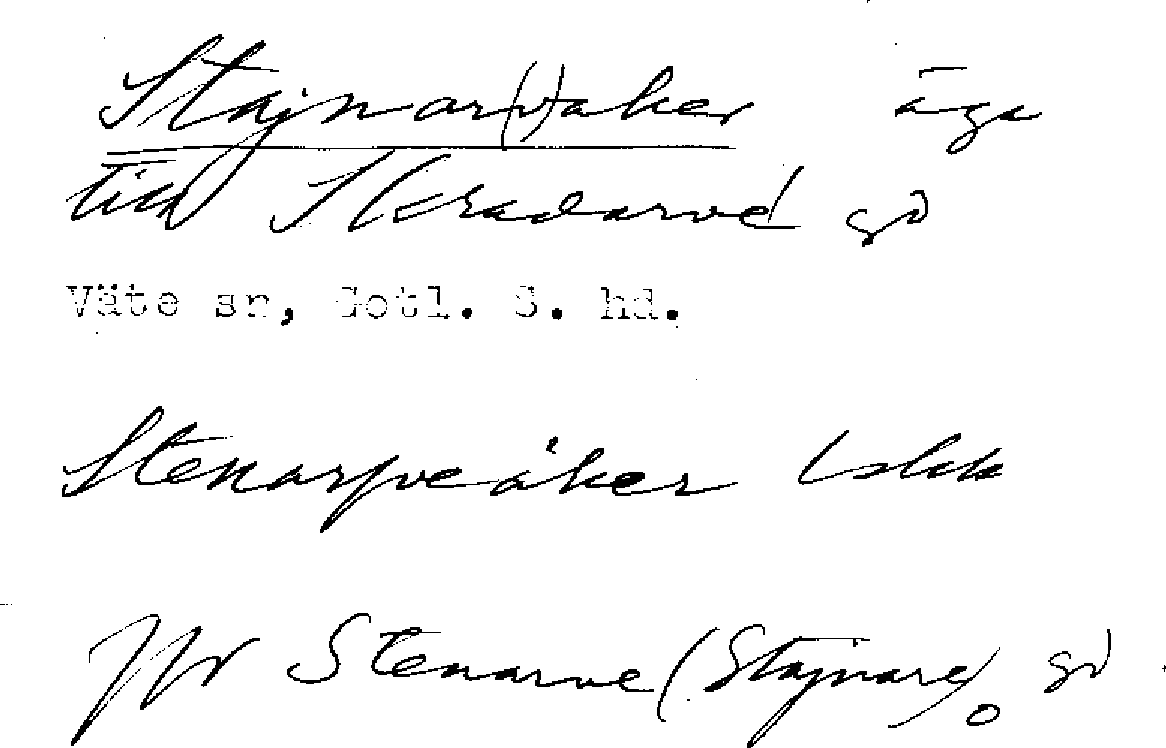 Stajnar(v)aker äga
till Skradarve gd
Väte sn, Gotl. S. hd.
Stenarveåker
Jfr Stenarve (Stajnare) gd